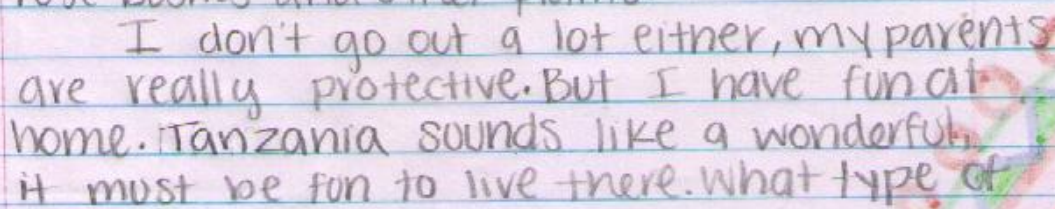 I don't go out a lot either, my parents
are really protective. But I have fun at
home. Tanzania sounds like a wonderful,
it must be fun to live there. What type of